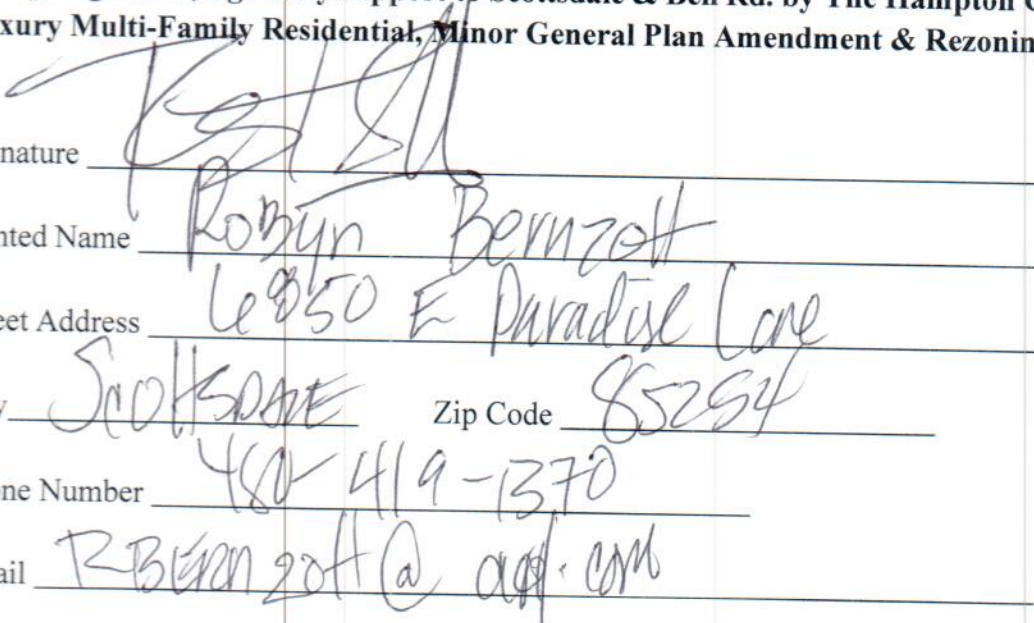 Scottsdale & Bell Rd. by The Hampton
xury Multi-Family Residential, Minor General Plan Amendment & Rezonin
nature
nted Name Robyn Bernzott
eet Address 6850 E Paradise Lane
Scottsdale Zip Code 85254
ne Number 480-419-1370
ail RBernzott@aol.com